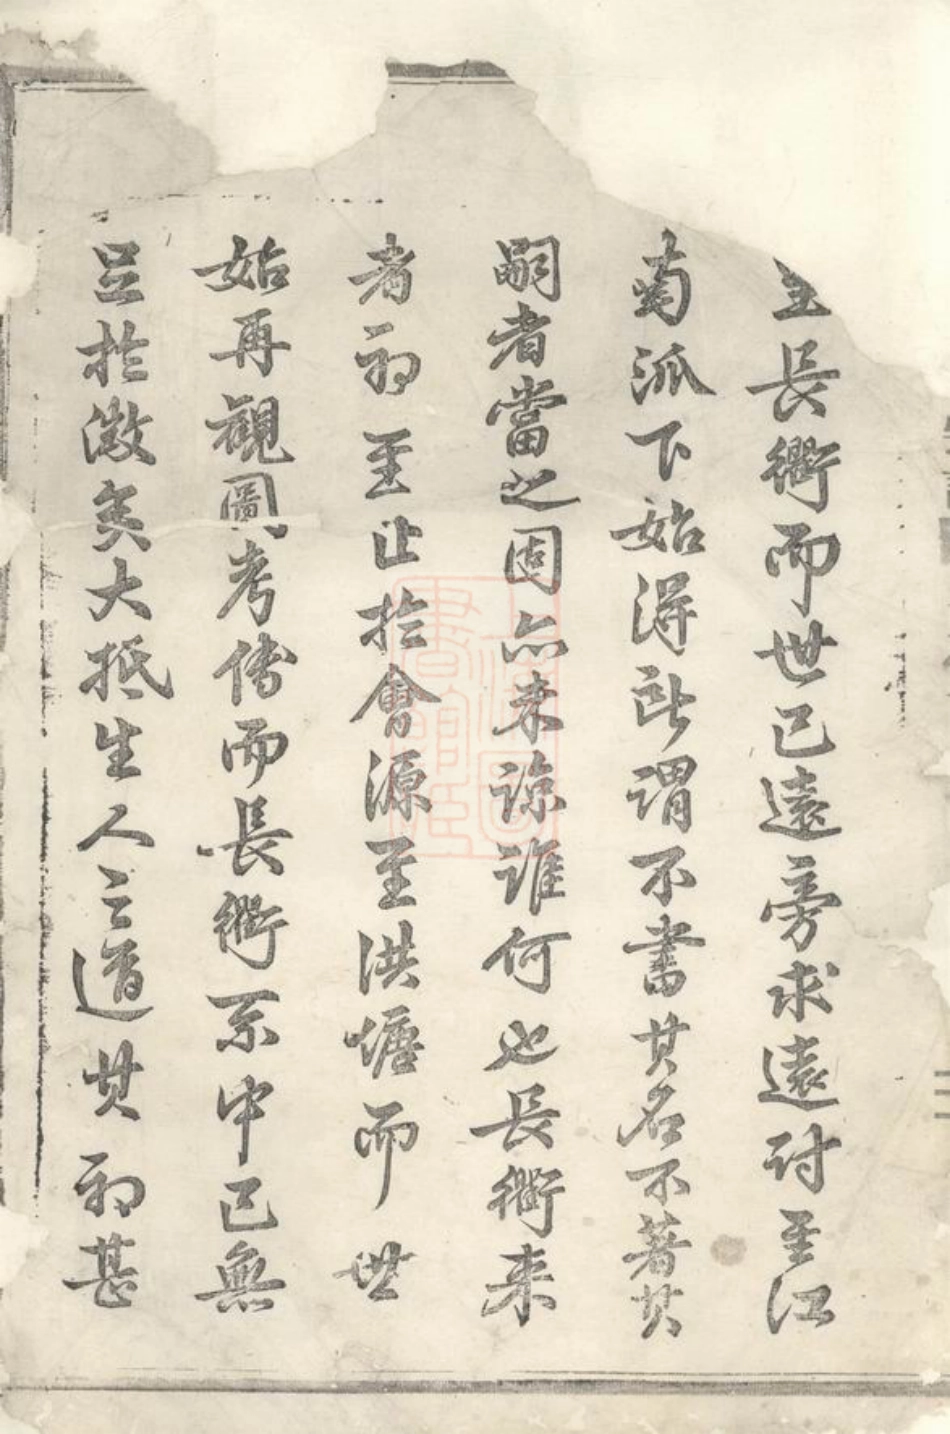 至長衢而世已遠旁求遠討至江
南派下始得所謂不書其名不著其
嗣者當之固亦未諒誰何也長衢來
者初至止於會源至洪塘而世
始再觀圖考傳而長衢系中已無
足於徵矣大抵生人之道其初甚